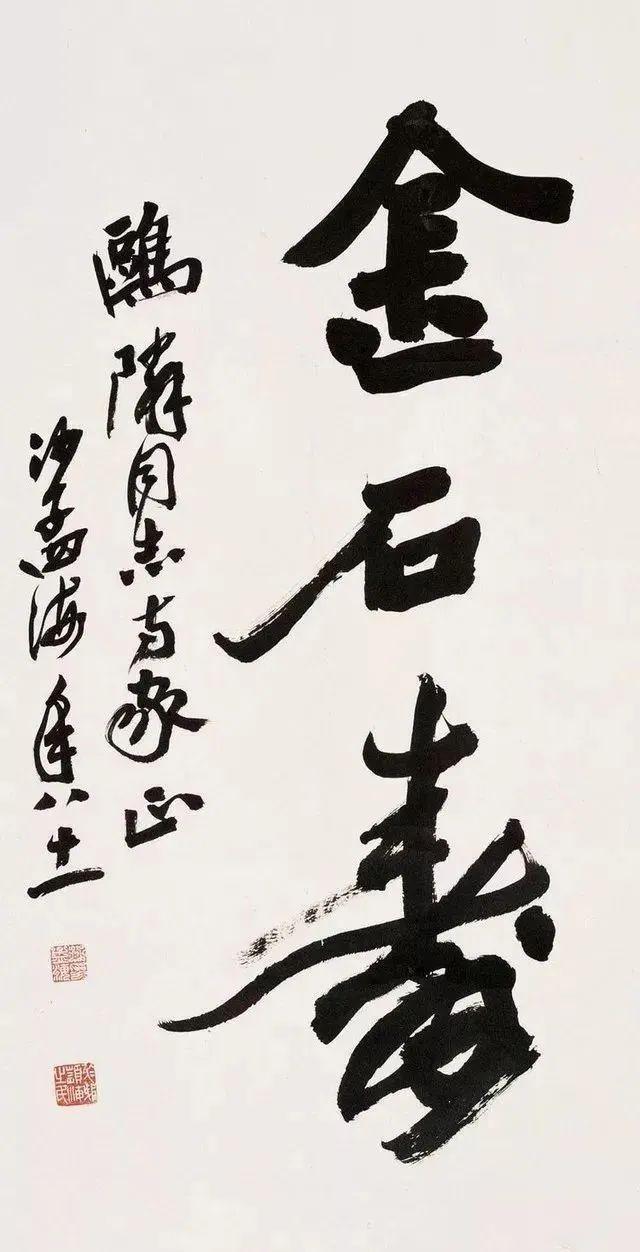 金石壽
鷗隣同志方家正
沙孟海年八十一